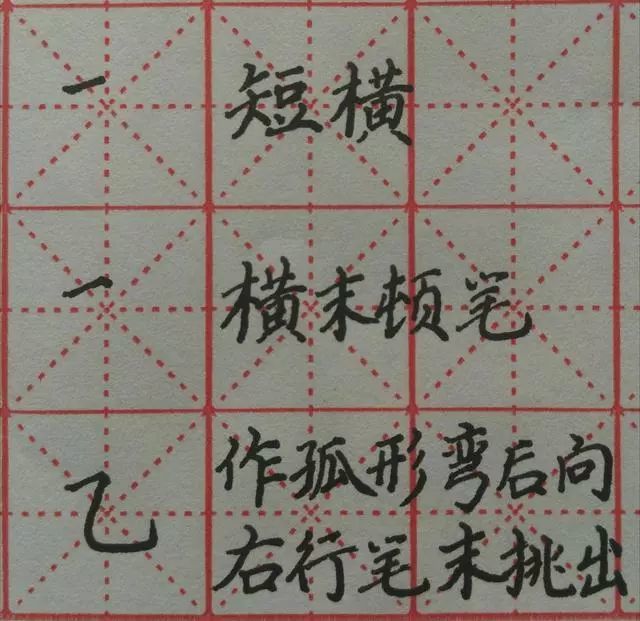 一 短横
一 横末顿笔
乙 作孤形弯后向
右行笔末挑出